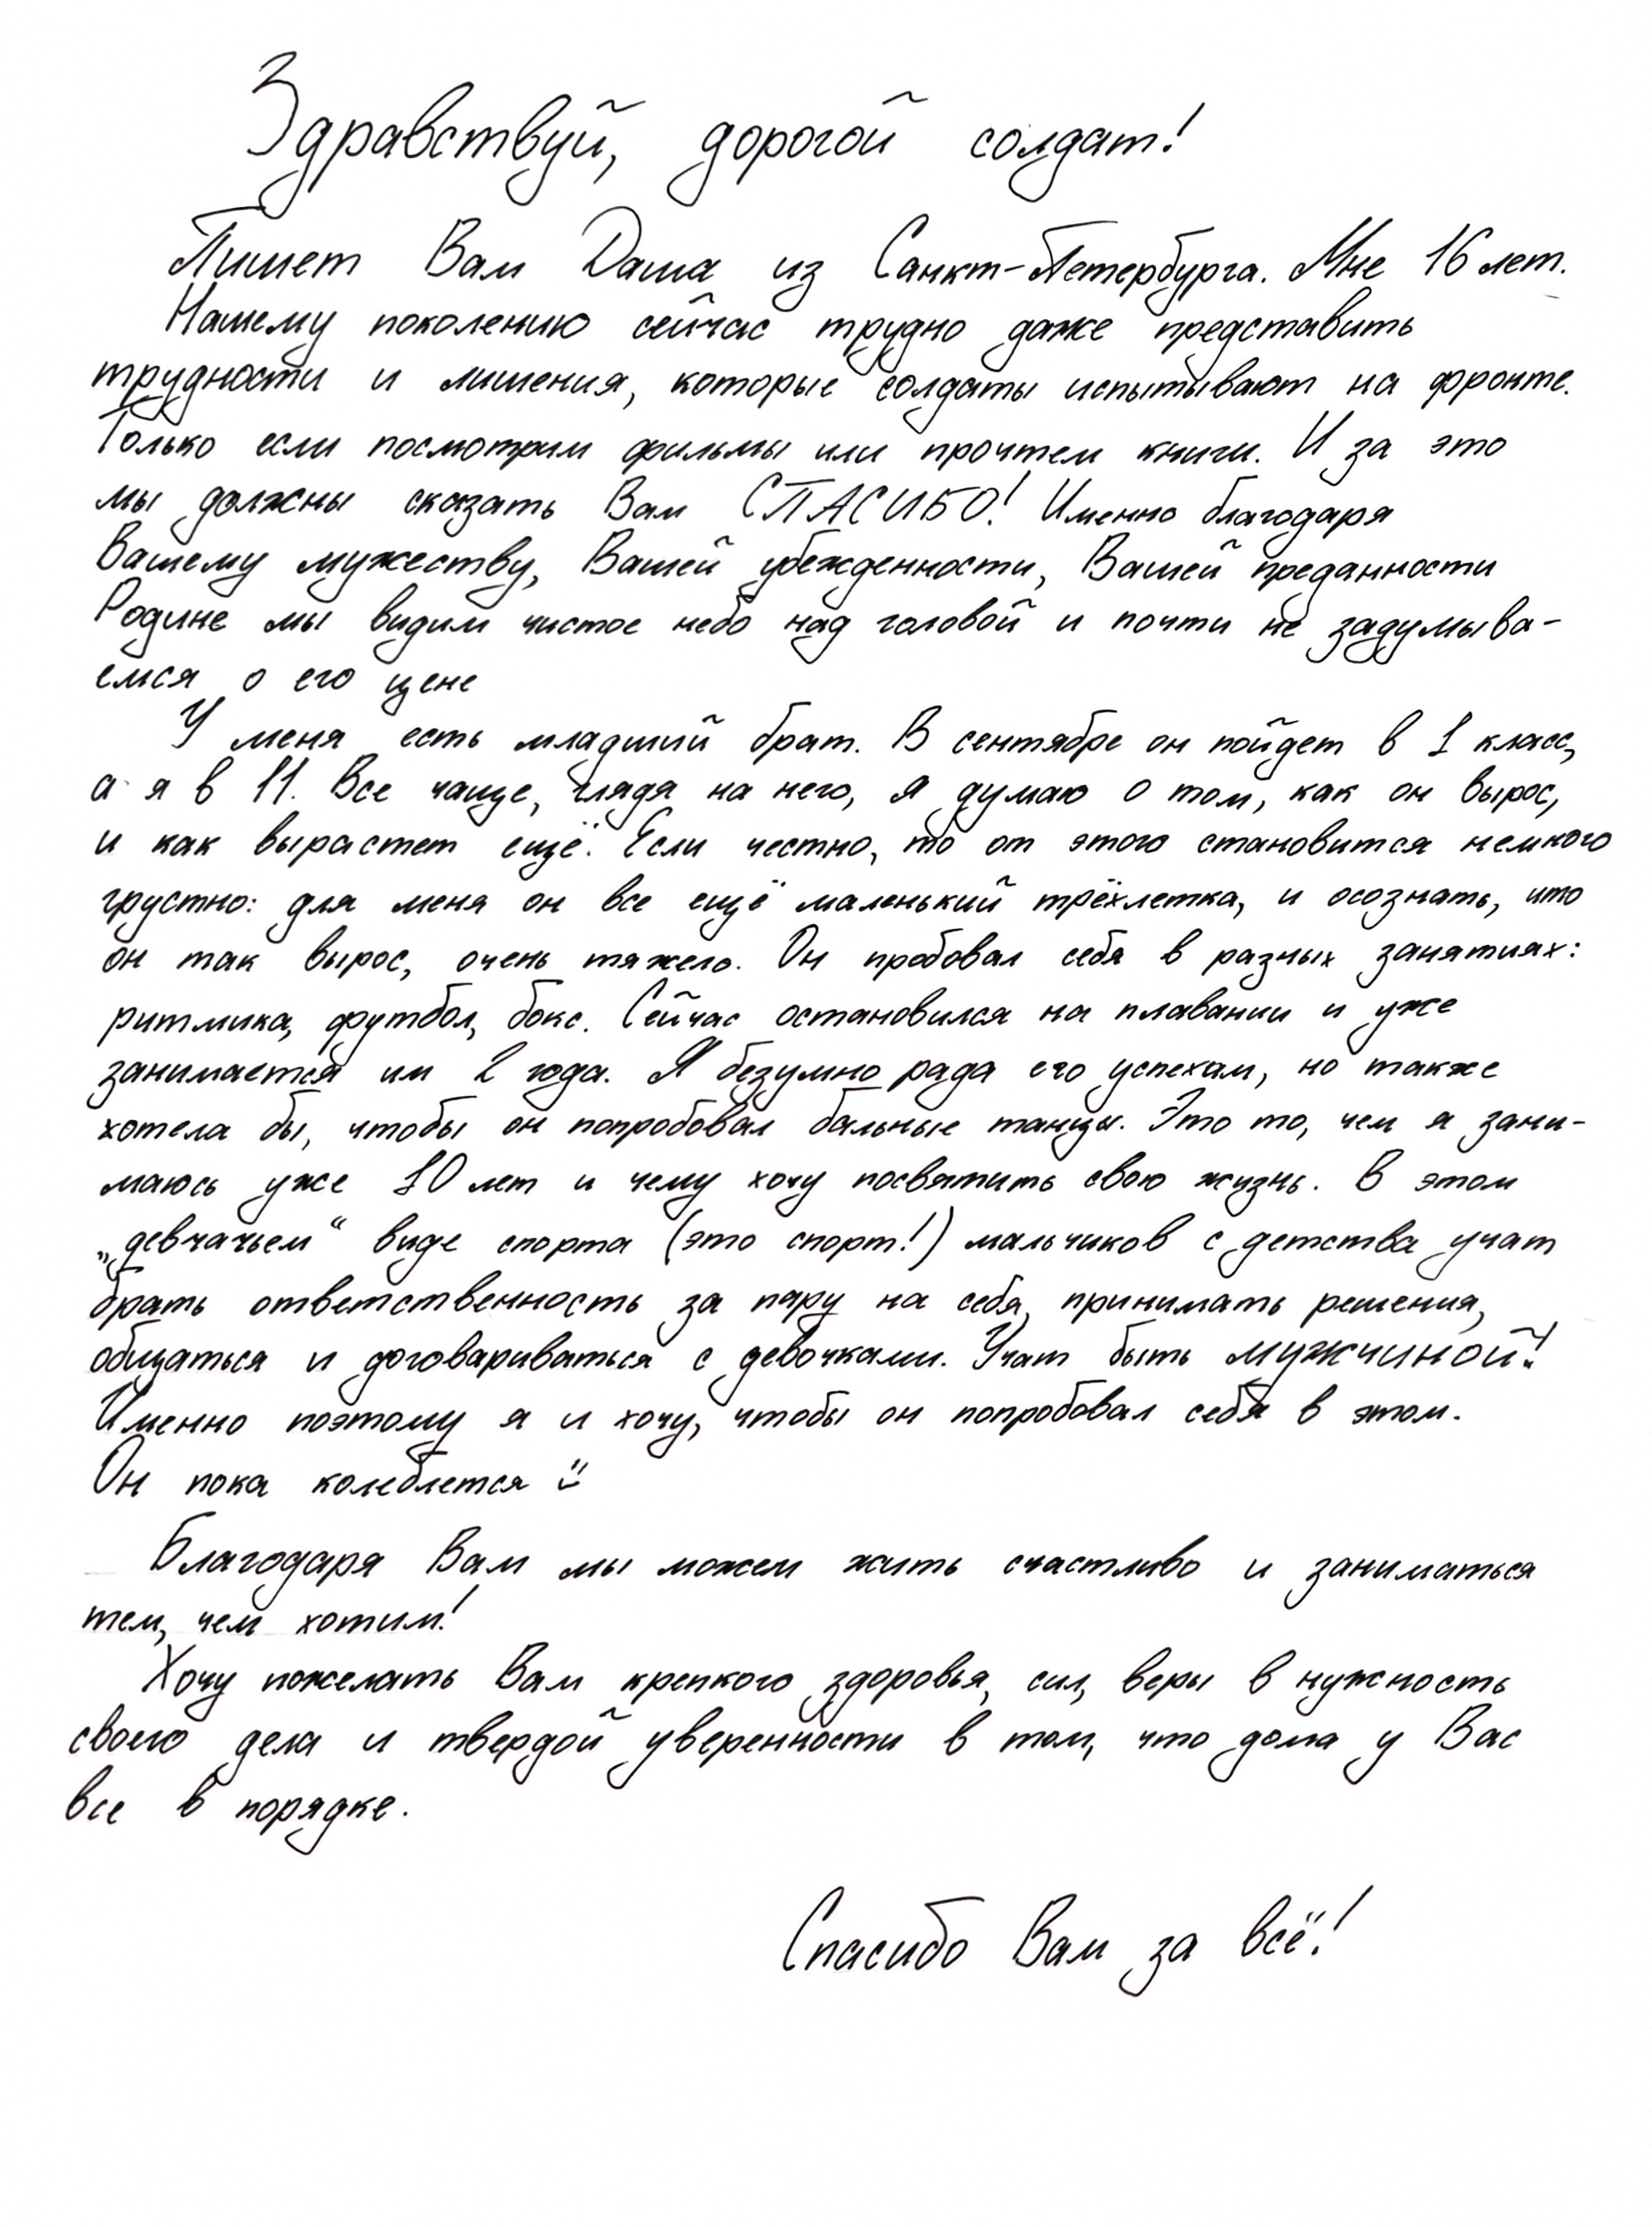 Здравствуй, дорогой солдат!
Пишет Вам Даша из Санкт-Петербурга. Мне 16 лет.
Нашему поколению сейчас трудно даже представить
трудности и лишения, которые солдаты испытывают на фронте.
Только если посмотрим фильмы или прочтем книги. И за это
мы должны сказать Вам СПАСИБО! Именно благодаря
Вашему мужеству, Вашей убежденности, Вашей преданности
Родине мы видим чистое небо над головой и почти не задумыва-
емся о его цене
У меня есть младший брат. В сентябре он пойдет в 1 класс,
а я в 11. Все чаще, глядя на него, я думаю о том, как он вырос,
и как вырастет ещё. Если честно, то от этого становится немного
грустно: для меня он все ещё маленький трёхлетка, и осознать, что
он так вырос, очень тяжело. Он пробовал себя в разных занятиях:
ритмика, футбол, бокс. Сейчас остановился на плавании и уже
занимается им 2 года. Я безумно рада его успехам, но также
хотела бы, чтобы он попробовал бальные танцы. Это то, чем я зани-
маюсь уже 10 лет и чему хочу посвятить свою жизнь. В этом
„девчачьем“ виде спорта (это спорт!) мальчиков с детства учат
брать ответственность за пару на себя, принимать решения,
общаться и договариваться с девочками. Учат быть МУЖЧИНОЙ!
Именно поэтому я и хочу, чтобы он попробовал себя в этом.
Он пока колеблется
Благодаря Вам мы можем жить счастливо и заниматься
тем, чем хотим!
Хочу пожелать Вам крепкого здоровья, сил, веры в нужность
своего дела и твердой уверенности в том, что дома у Вас
все в порядке.
Спасибо Вам за всё!